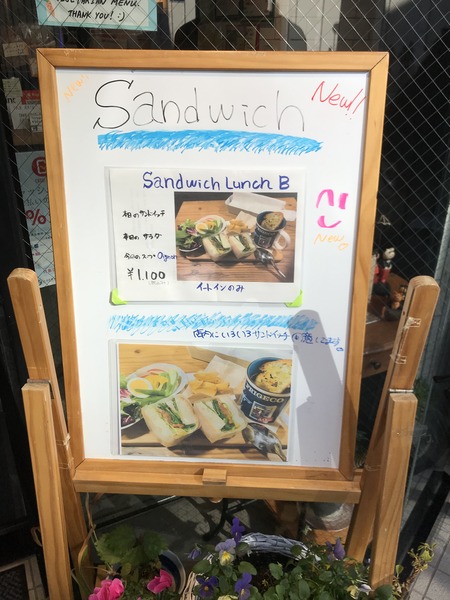 THANK YOU! :)
MENU.
New
Sandwich
New!!
Sandwich Lunch B
本日のサンドイッチ
本日のサラダ
今日のスープ
¥1,100
イートインのみ
New
店内にいろいろサンドイッチ